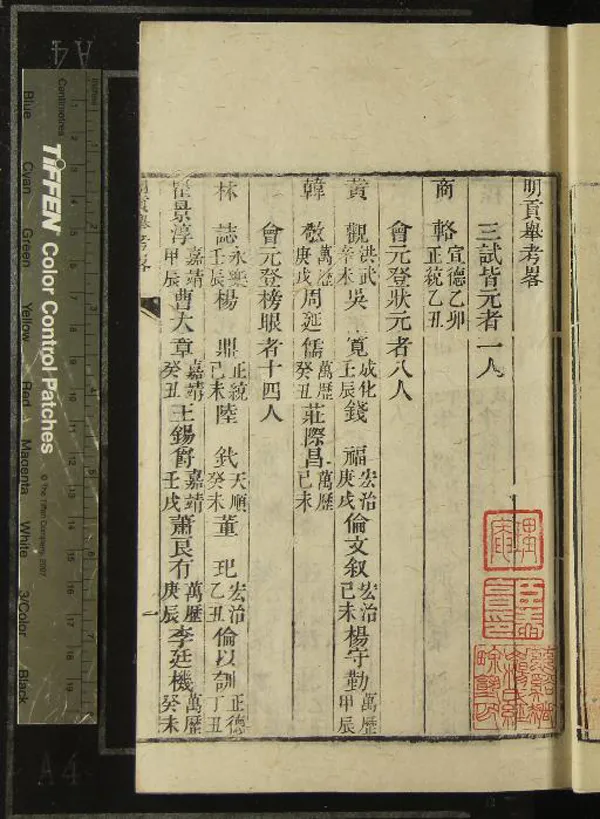 明貢舉考畧
三試皆元者一人
商輅 宣德乙卯 正統乙丑
會元登狀元者八人
黃觀 洪武辛未 吳寬 成化壬辰 錢福 宏治庚戌 倫文叙 宏治己未 楊守勤 萬歷甲辰
韓敬 萬歷庚戌 周延儒 萬歷癸丑 莊際昌 萬歷己未
會元登榜眼者十四人
林誌 永樂壬辰 楊鼎 正統己未 陸釴 天順癸未 董玘 宏治乙丑 倫以訓 正德丁丑
瞿景淳 嘉靖甲辰 曹大章 嘉靖癸丑 王錫爵 嘉靖壬戌 蕭良有 萬歷庚辰 李廷機 萬歷癸未
明貢舉考畧 一
TIFFEN Color Control Patches
© The Tiffen Company, 2007
Centimetres
Blue Cyan Green Yellow Red Magenta White 3/Color Black
A4
A4